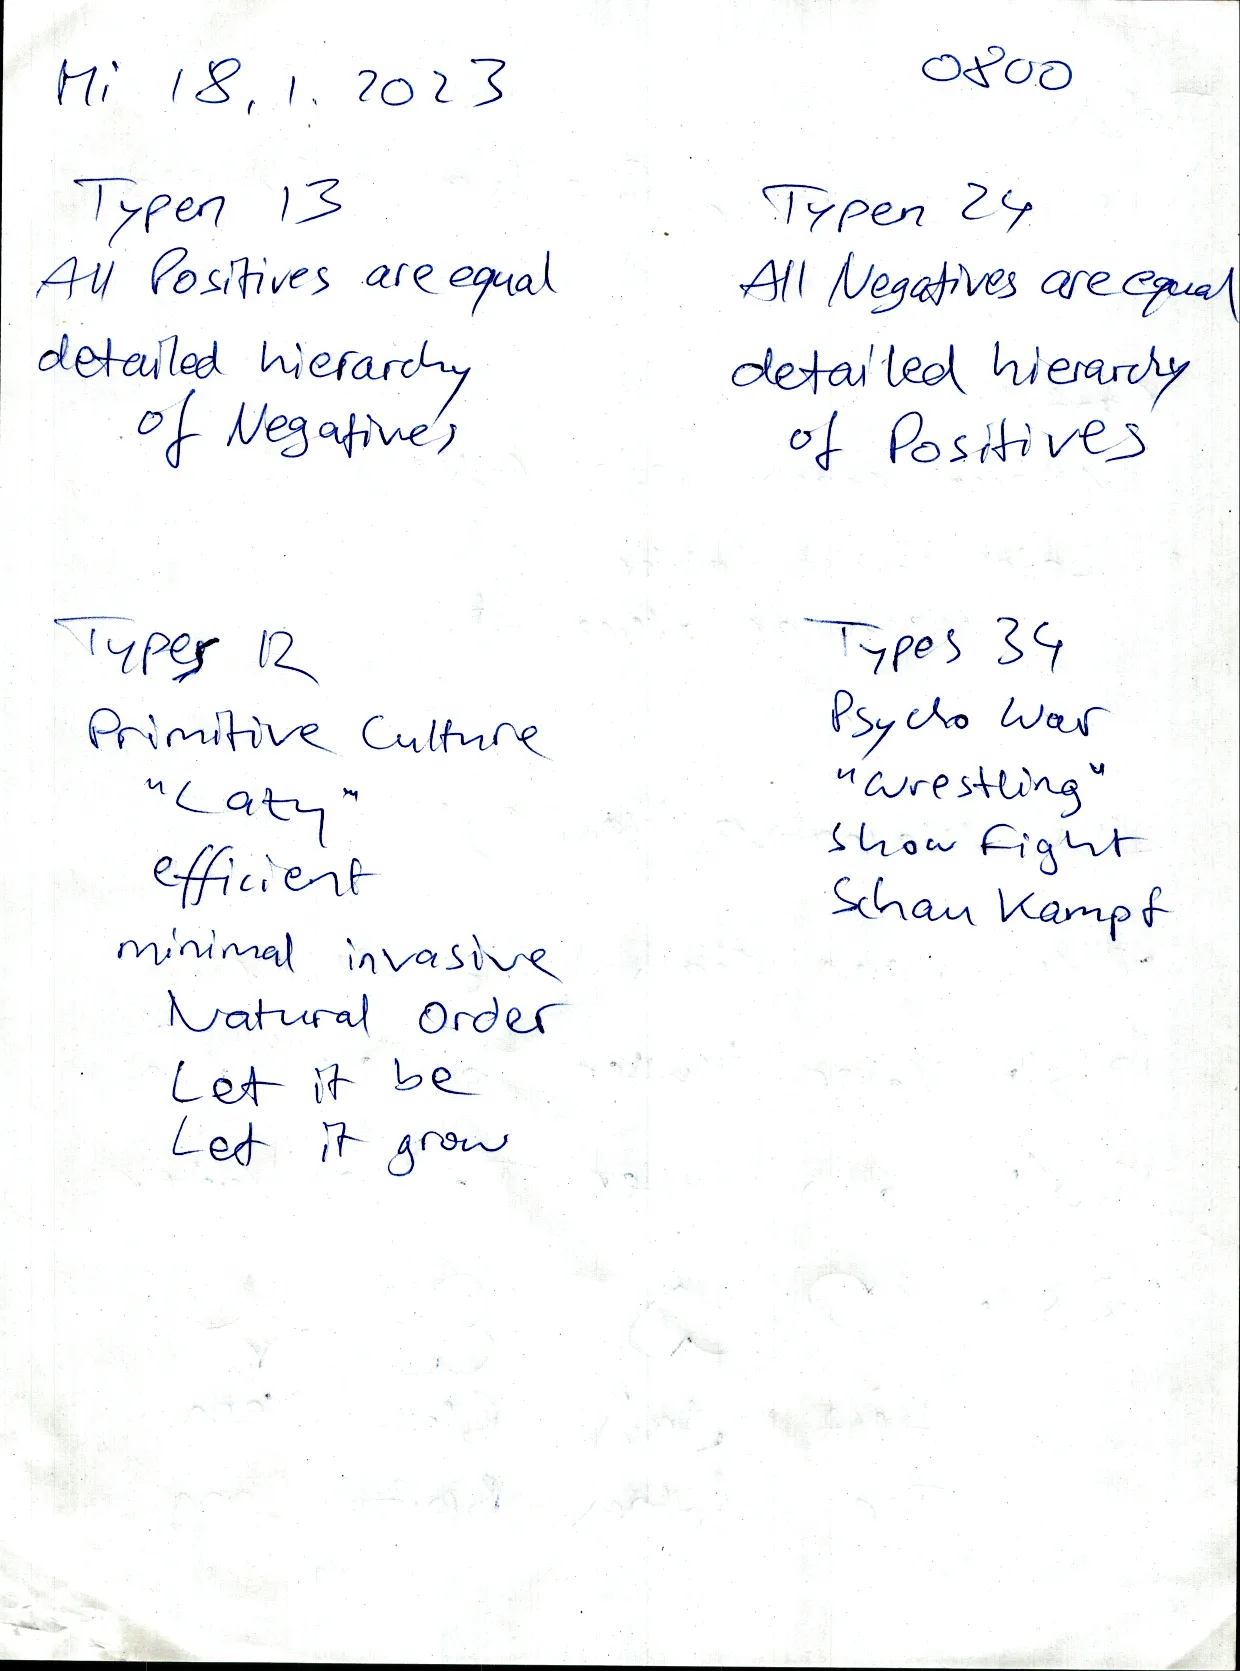 Mi 18.1.2023 0800
Typen 13
All Positives are equal
detailed hierarchy
of Negatives
Typen 24
All Negatives are equal
detailed hierarchy
of Positives
Types 12
Primitive Culture
"Lazy"
efficient
minimal invasive
Natural Order
Let it be
Let it grow
Types 34
Psycho War
"Wrestling"
Show Fight
Schau Kampf